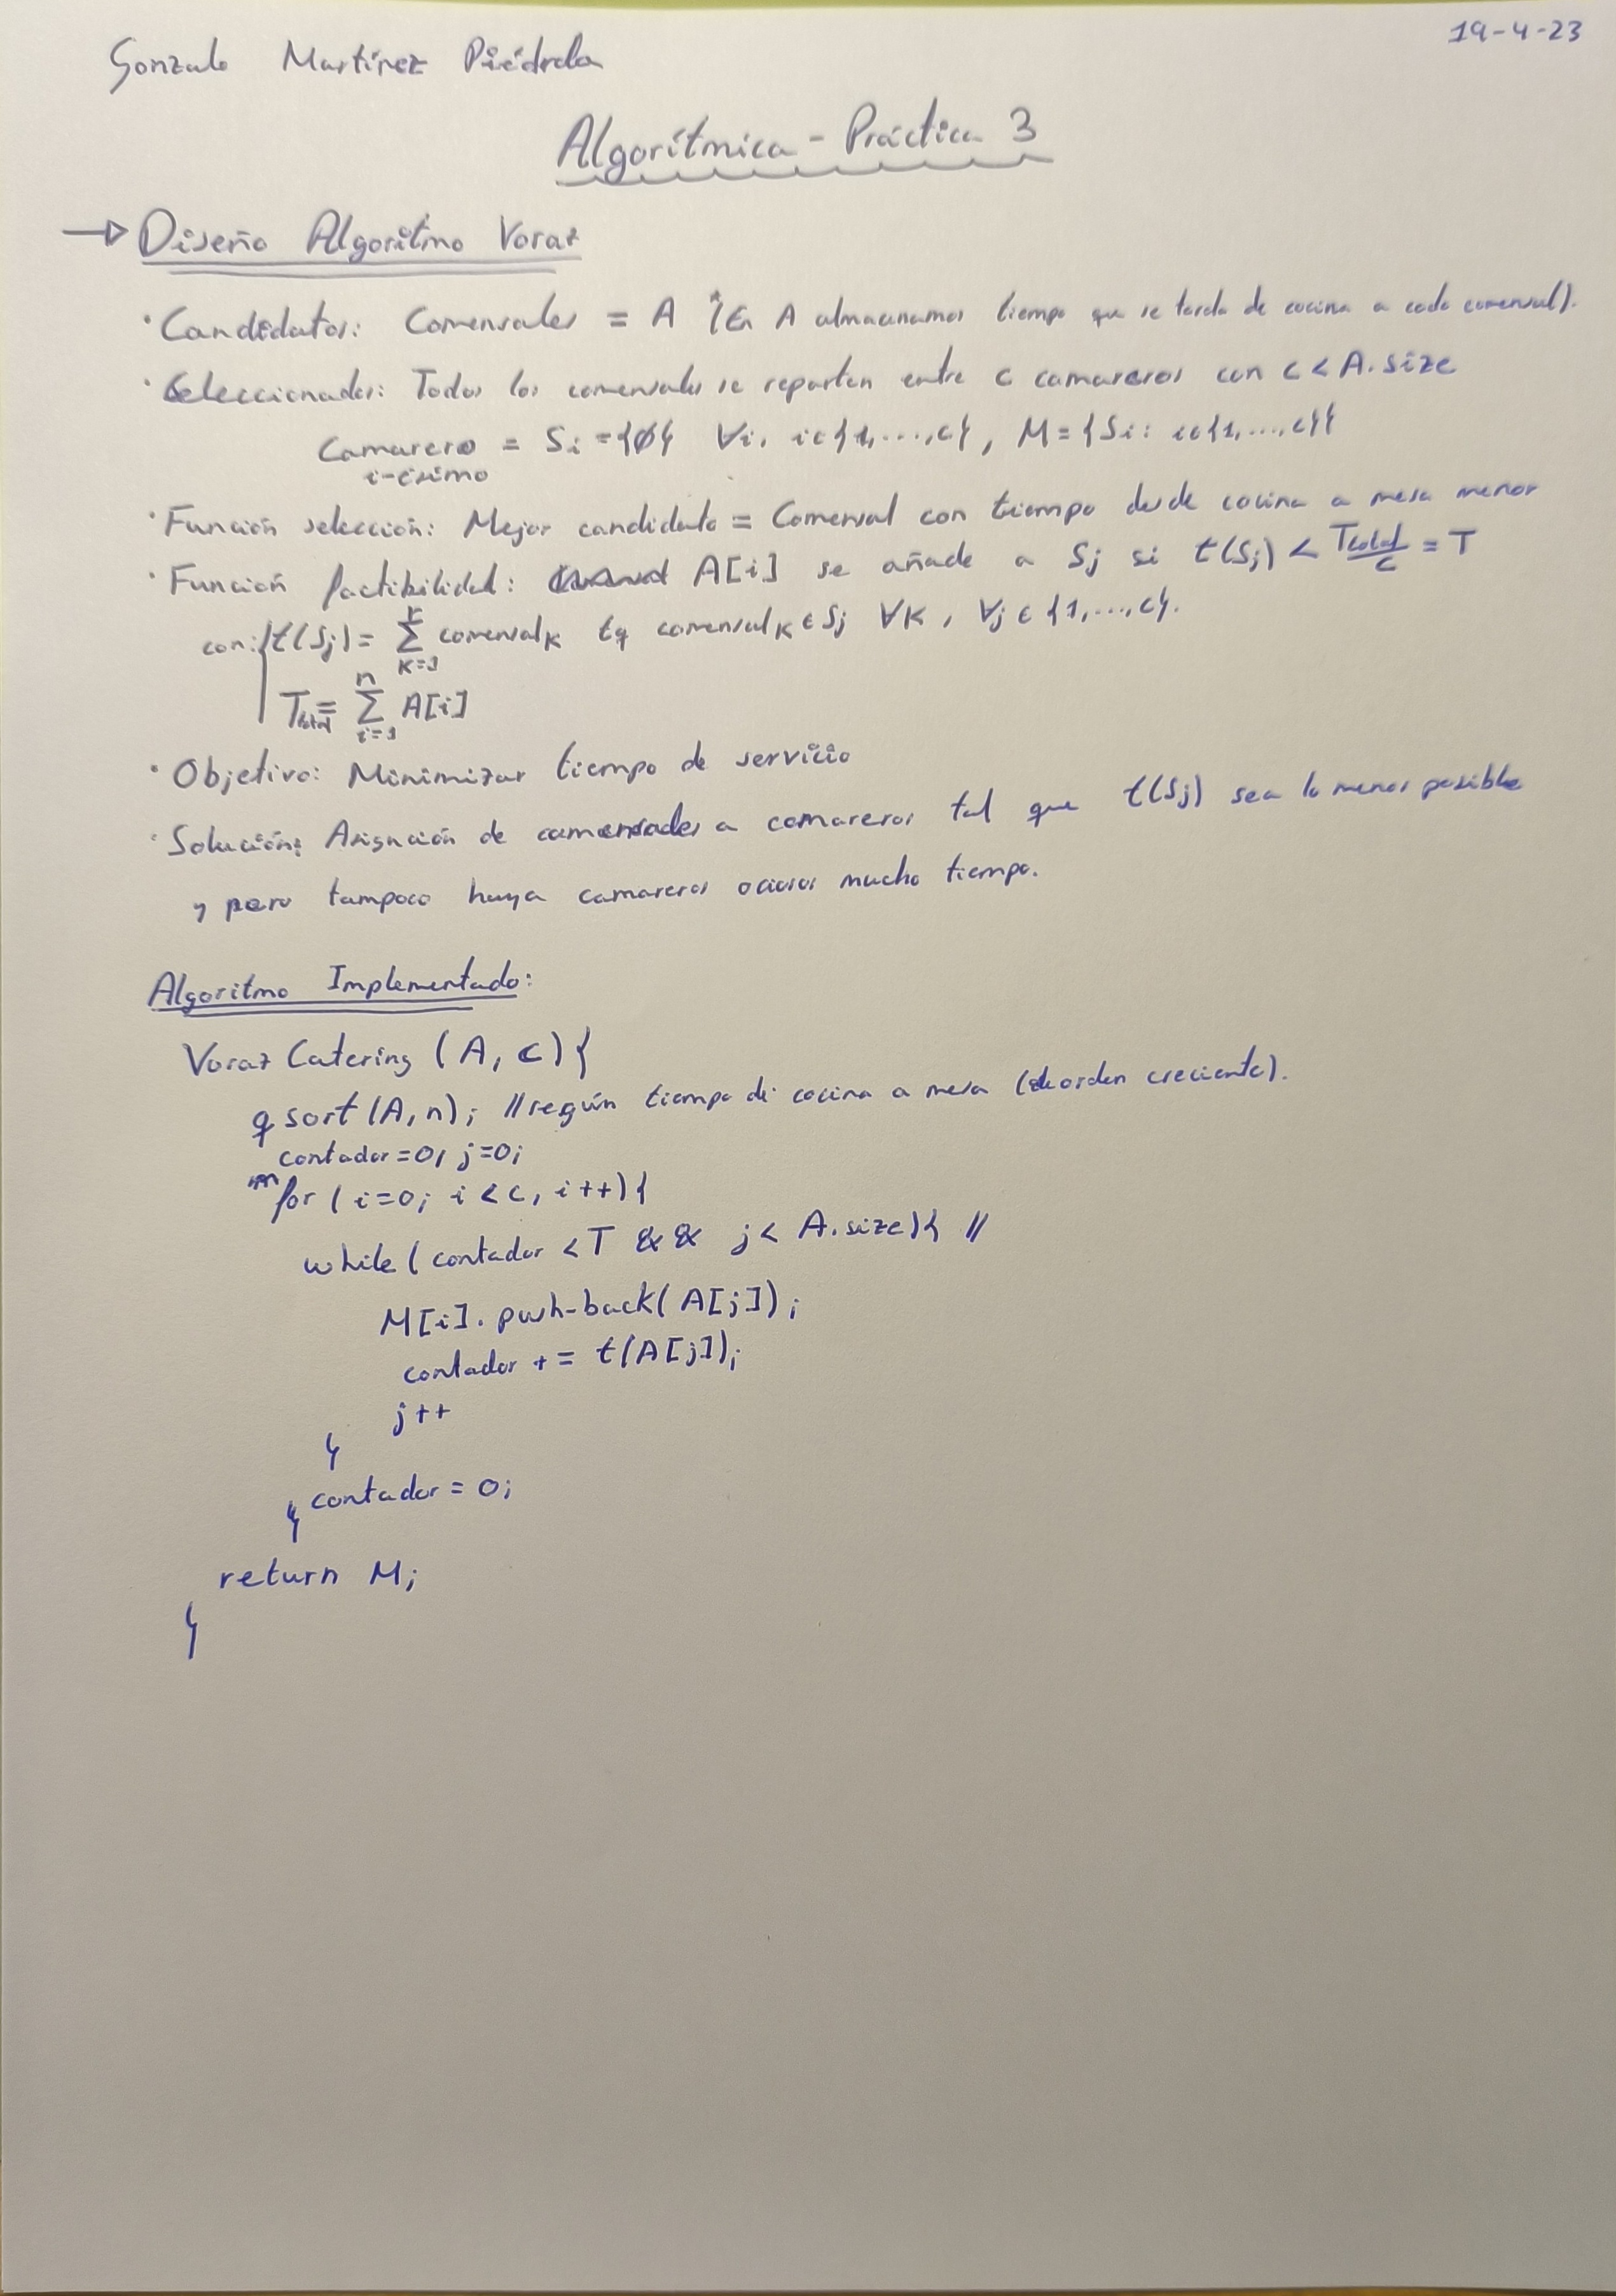 19-4-23
Gonzalo Martínez Piédrola
Algorítmica - Práctica 3
→ Diseño Algoritmo Voraz
· Candidatos: Comensales = A (En A almacenamos tiempo que se tarda de cocina a cada comensal).
· Seleccionados: Todos los comensales se reparten entre c camareros con c < A.size
Camarero = Si = {∅} ∀i, i∈{1,...,c}, M = {Si: i∈{1,...,c}}
i-ésimo
· Función selección: Mejor candidato = Comensal con tiempo desde cocina a mesa menor
· Función factibilidad: A[i] se añade a Sj si t(Sj) < Ttotal/c = T
con: t(Sj) = Σ_{k=1}^{r} comensal_k tq comensal_k ∈ Sj ∀k, ∀j ∈ {1,...,c}.
Ttotal = Σ_{i=1}^{n} A[i]
· Objetivo: Minimizar tiempo de servicio
· Solución: Asignación de comensales a camareros tal que t(Sj) sea lo menor posible
y pero tampoco haya camareros ociosos mucho tiempo.
Algoritmo Implementado:
Voraz Catering (A, c) {
qsort(A, n); // según tiempo de cocina a mesa (de orden creciente).
contador = 0, j = 0;
for ( i=0; i < c, i++) {
while ( contador < T && j < A.size) { //
M[i].push-back( A[j]);
contador += t(A[j]);
j++
}
contador = 0;
}
return M;
}